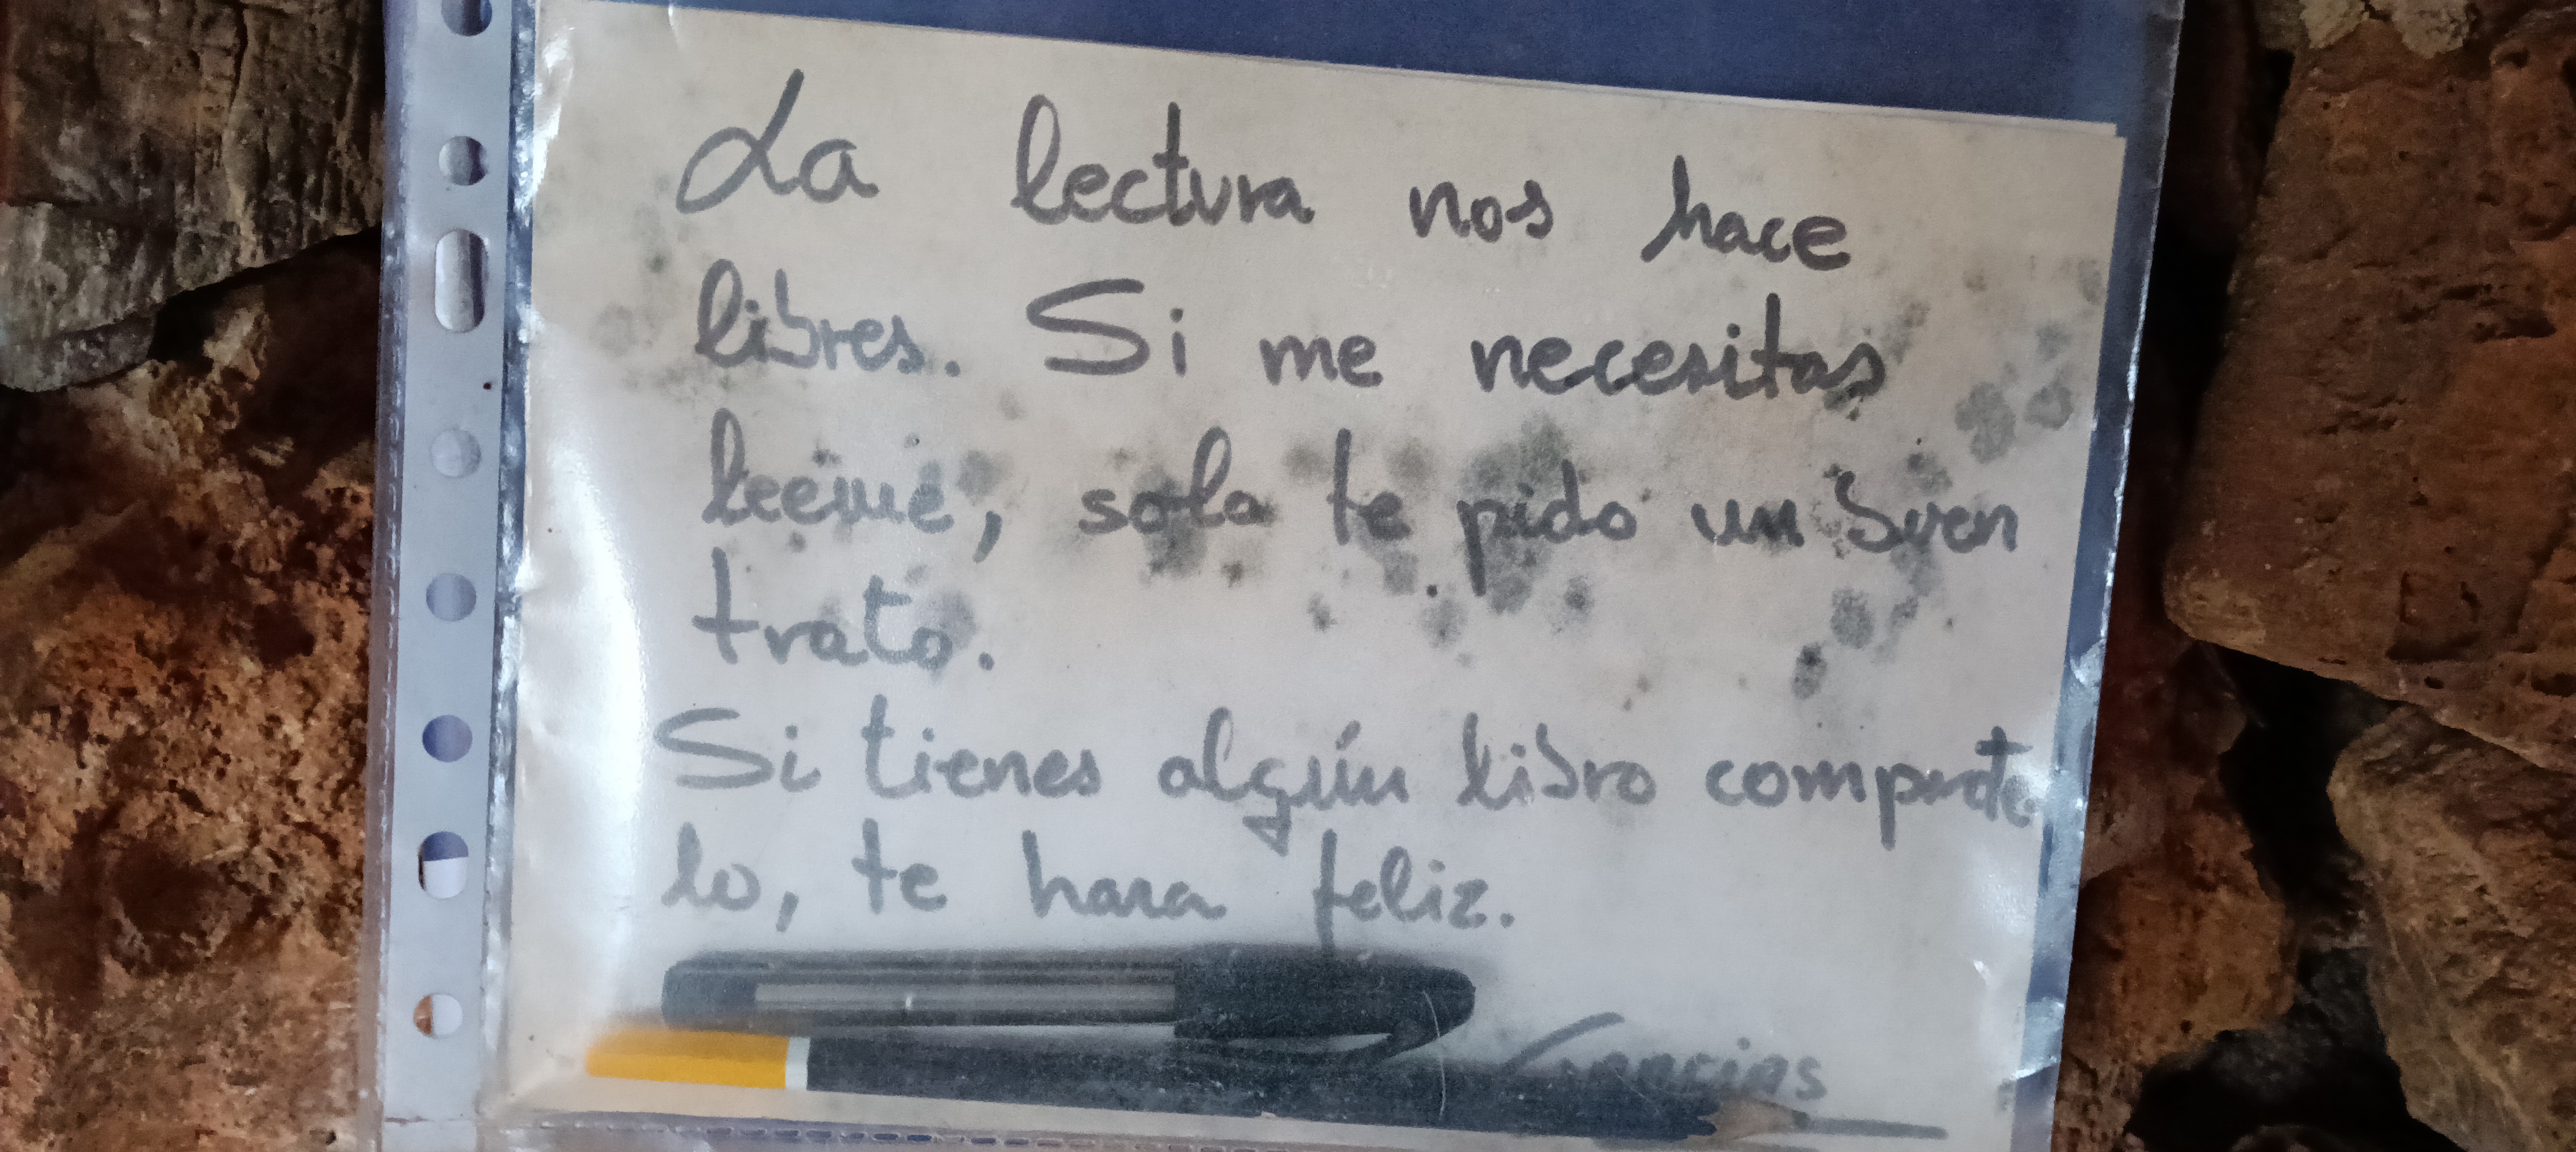 La lectura nos hace
libres. Si me necesitas
leeme, solo te pido un buen
trato.
Si tienes algún libro comparte
lo, te hara feliz.
Gracias